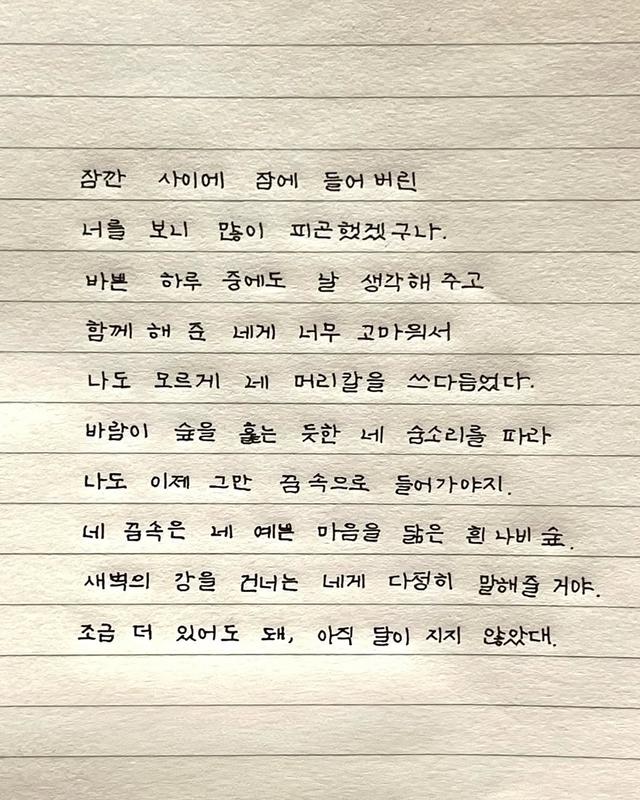 잠깐 사이에 잠에 들어 버린
너를 보니 많이 피곤했겠구나.
바쁜 하루 중에도 날 생각해 주고
함께 해 준 네게 너무 고마워서
나도 모르게 네 머리칼을 쓰다듬었다.
바람이 숲을 훑는 듯한 네 숨소리를 따라
나도 이제 그만 꿈속으로 들어가야지.
네 꿈속은 네 예쁜 마음을 닮은 흰 나비 숲.
새벽의 강을 건너는 네게 다정히 말해줄 거야.
조금 더 있어도 돼, 아직 달이 지지 않았대.